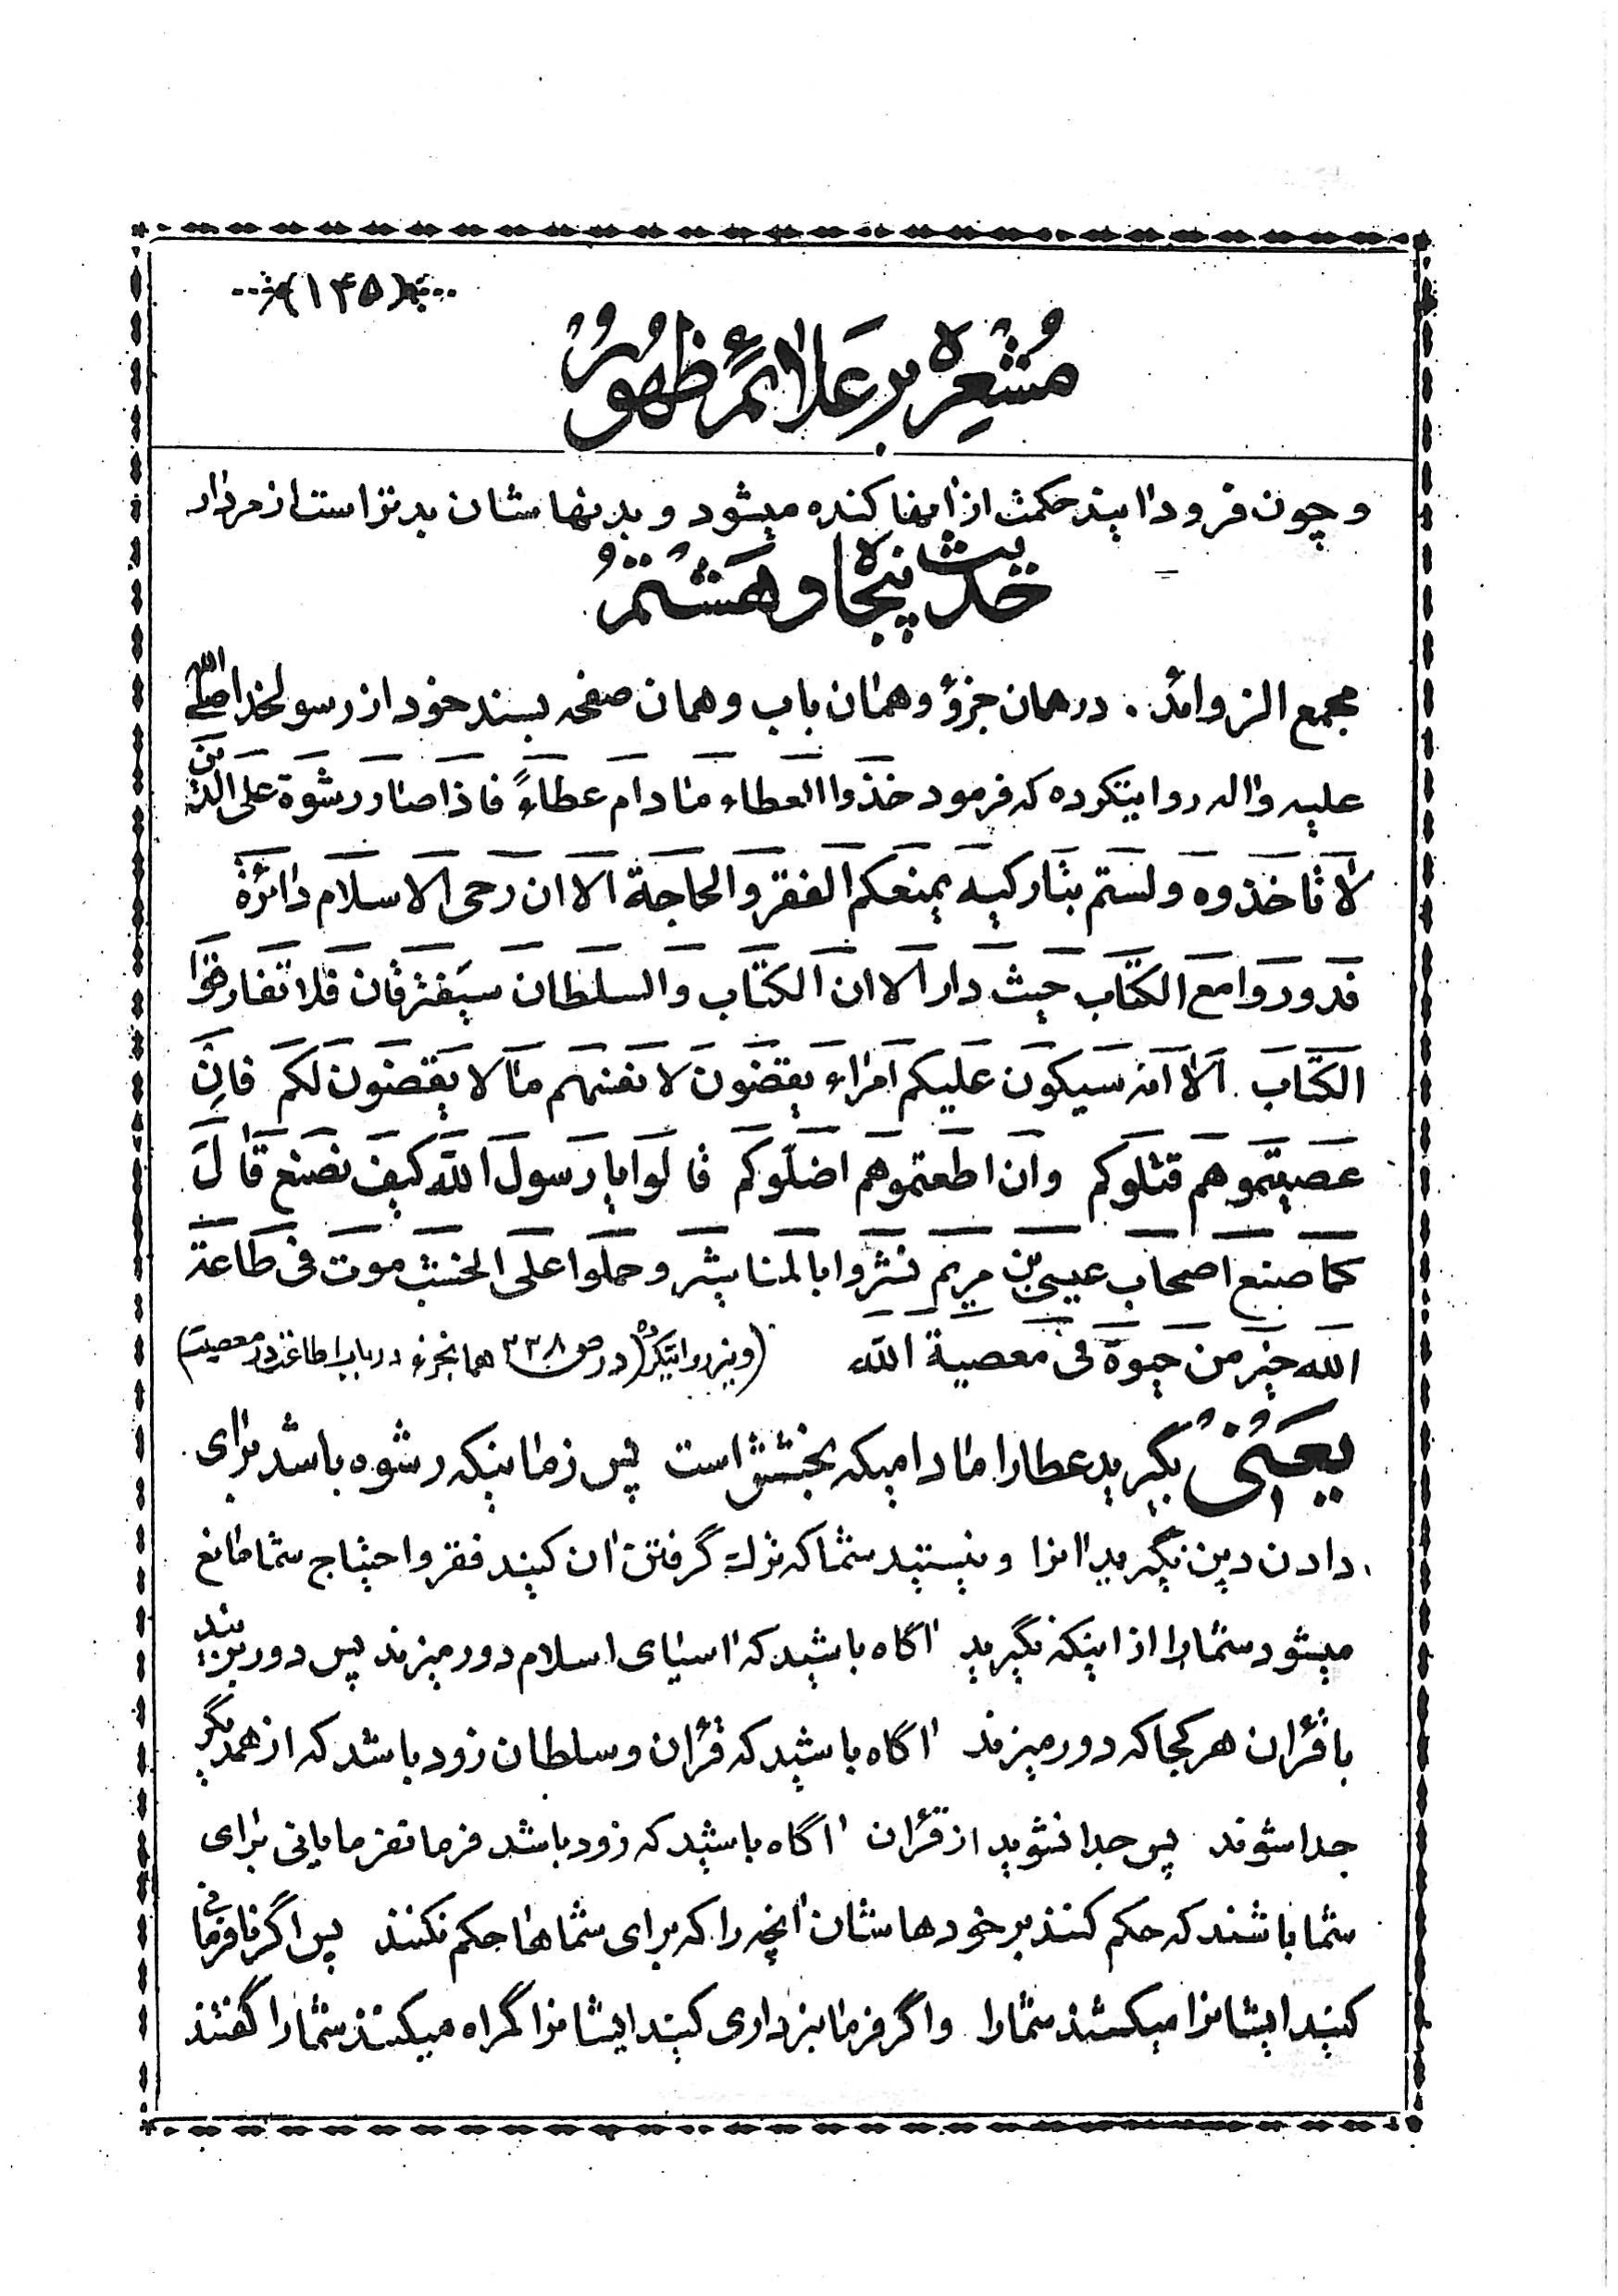 (۱۴۵)
مشعره بر علائم ظهور
و چون فرود ایند حکمت از انها کنده میشود و بدنهاشان بدتر است از مردار
حدیث پنجاه و هشتم
مجمع الزوائد . در همان جزؤ و همان باب و همان صفحه بسند خود از رسولخدا صلی الله
علیه واله روایتکرده که فرمود خذوا العطاء مادام عطاءً فاذا صار رشوة علی الدین
لا تاخذوه ولستم بتارکیه یمنعکم الفقر والحاجة الا ان رحی الاسلام دائرة
فدوروا مع الکتاب حیث دار الا ان الکتاب والسلطان سیفترقان فلا تفارقوا
الکتاب . الا انه سیکون علیکم امراء یقضون لانفسهم مالا یقضون لکم فان
عصیتموهم قتلوکم وان اطعتموهم اضلوکم قالوا یا رسول الله کیف نصنع قال
کما صنع اصحاب عیسی بن مریم نشروا بالمناشیر وحملوا علی الخشب موت فی طاعة
الله خیر من حیوة فی معصیة الله (و نیز روایتکرده (در ص ۲۳۸ همانجزء در باب اطاعت در معصیت)
یعنی بگیرید عطا را مادامیکه بخشش است پس زمانیکه رشوه باشد برای
دادن دین نگیرید انرا و نیستید شما که ترک گرفتن ان کنید فقر و احتیاج شما مانع
میشود شما را از اینکه نگیرید اگاه باشید که اسیای اسلام دور میزند پس دور بزنید
با قرآن هر کجا که دور میزند اگاه باشید که قرآن و سلطان زود باشد که از همدیگر
جدا شوند پس جدا نشوید از قرآن اگاه باشید که زود باشد فرمانفرمایانی برای
شما باشند که حکم کنند بر خودهاشان انچه را که برای شماها حکم نکنند پس اگر نافرمانی
کنید ایشانرا میکشند شما را و اگر فرمانبرداری کنید ایشانرا گمراه میکنند شما را گفتند